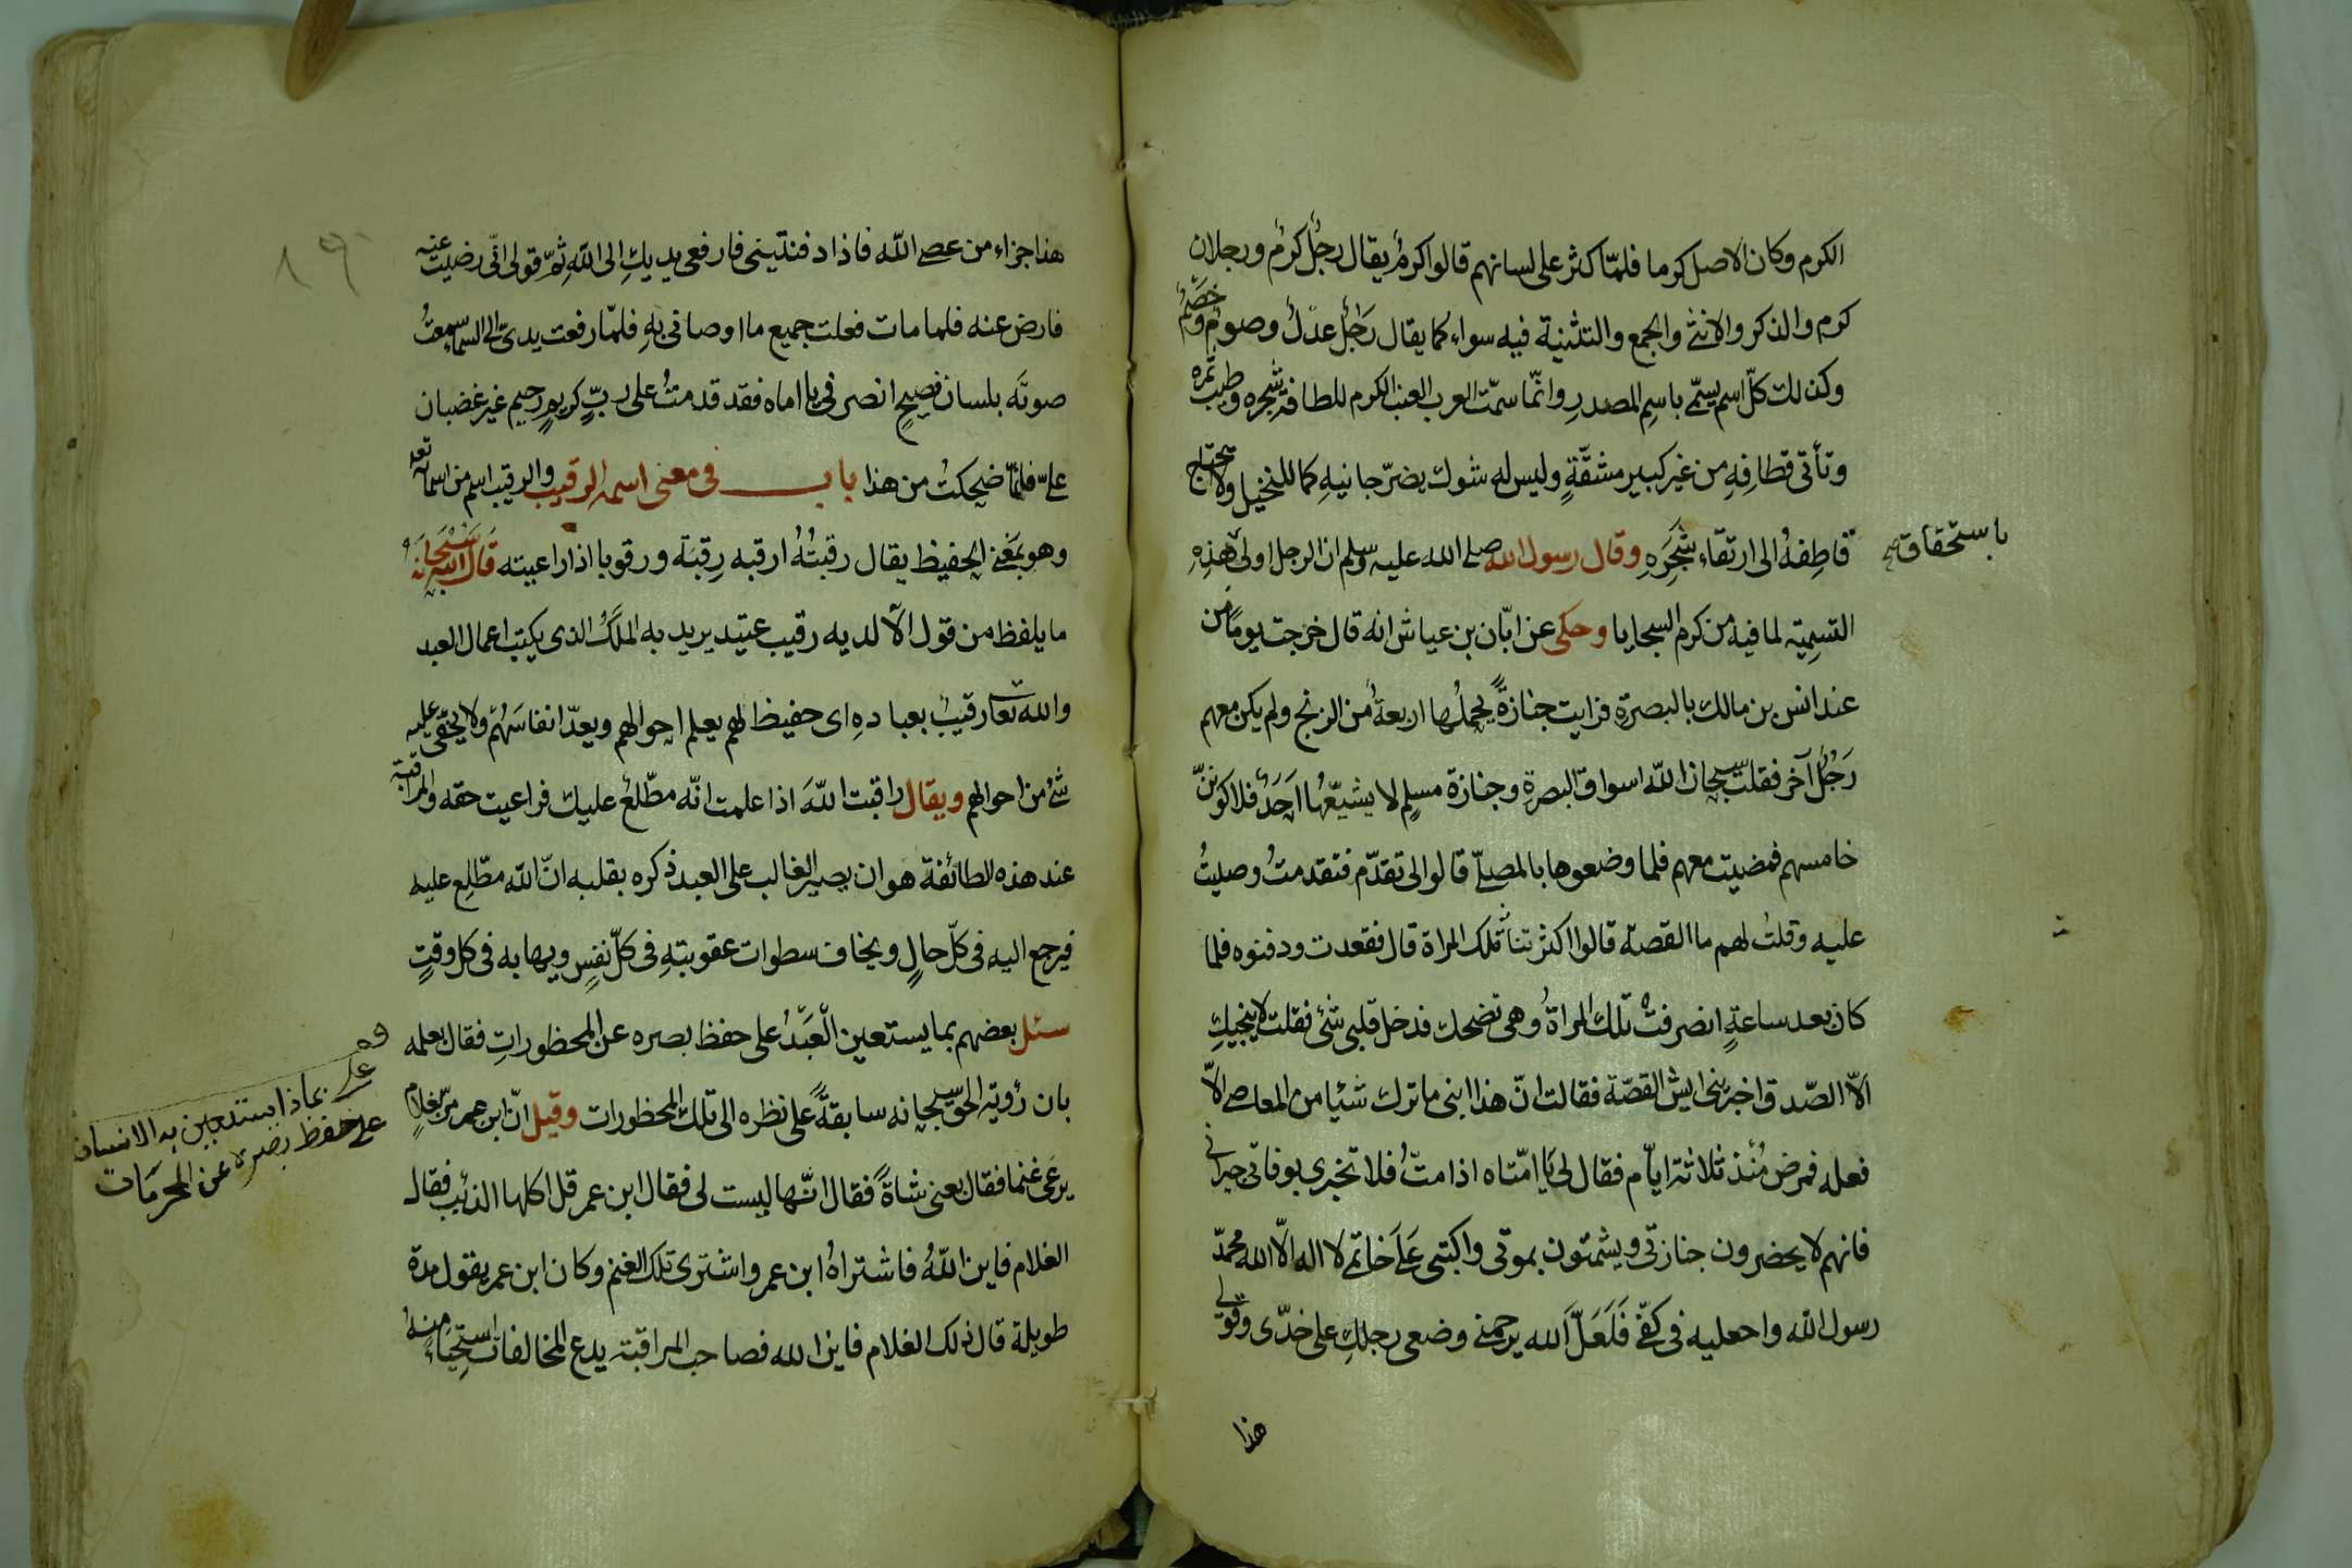 الكرم وكان الاصل كرما فلمّا كثر على لسانهم قالوا كرمٌ يقال رجُلٌ كرمٌ ورجلان
كرم والذكر والانثى والجمع والتثنية فيه سواء كما يقال رَجُلٌ عدْلٌ وصومٌ وخَصْمٌ
وكذلك كلّ اسم يسمّى باسمِ المصدرِ وانّما سمّت العرب العنب الكرم للطافة شجره وطيب ثمره
وتأتى قطافِهِ من غير كبير مشقّةٍ وليس له شوك يضرّ جانيهِ كما للنخيل ولا يحتاج
قاطِفهُ الى ارتقاء شَجَرِهِ وقال رسول الله صلى الله عليه وسلم ان الرجل اولى بهذِهِ
باستحقاق صح
التسمِيَة لما فيه من كرم السجايا وحكى عن ابّان بن عياش انه قال خرجت يومًا من
عند انس بن مالك بالبصرةِ فرايت جنازةً يحملُها اربعةٌ من الزنج ولم يكن معهم
رَجُلٌ آخر فقلت سبحان الله اسواق البصرةِ وجنازة مسلِمٍ لا يشيّعُها اَحَدٌ فلاكوننّ
خامسهم فمضيت معهم فلما وضعوها بالمصلّى قالوا لى تقدّم فتقدمتُ وصليتُ
عليه وقلتُ لهم ما القصة قالوا اكثرتنا تلك المراة قال فقعدت ودفنوه فلما
كان بعد ساعةٍ انصرفتْ تلك المراةُ وهى تضحك فدخل قلبى شئ فقلت لا ينجيكِ
الّا الصّدق اخبرينى ايش القصّة فقالت انّ هذا ابنى ما ترك شئيا من المعاصى الّا
فعله فمرض مُنْذ ثلاثة ايّام فقال لى يَا امّتاه اذا متّ فلا تخبرى بوفاتى جيرانى
فانهم لا يحضرون جنازتى ويشمتون بموتى واكتبى عَلَى خاتمى لا اله الّا الله محمّد
رسول الله واجعليه فى كفّى فَلَعَلّ الله يرحمنى وضعى رجلكِ على خدّى وقولى
هذا
هذا جزاء من عصى الله فاذا دفنتينى فارفعى يديكِ الى اللهِ ثمّ قولى انّى رضيت عنه
فارض عنه فلما مات فعلت جميع ما اوصانى بهِ فلمّا رفعت يدىّ الى السماء سمِعتُ
صوتَه بلسان فصيحٍ انصرفى يا اماه فقد قدمتُ على ربٍّ كريمٍ رحيم غير غضبان
علىّ فلمّا ضحِكتُ من هذا باب فى معنى اسمه الرقيب والرقيب اسم من اسمائه تعه
وهو بمَعْنى الحفيظ يقال رقبتُهُ ارقبه رِقبَة ورقوبا اذا راعيته قال الله سُبْحَانَهُ
ما يلفظ من قول الّا لديه رقيب عتيد يريد به المَلَكُ الذى يكتب اعمال العبد
والله تعا رقيبٌ بعبادهِ اى حفيظ لهم يعلم احوالهم ويعدّ انفاسَهُم ولا يخفى عليه
شئ من احوالهم ويقال راقبت اللهَ اذا علمت انّه مطّلعٌ عليك فراعيت حقه والمراقبة
عند هذه الطائفة هو ان يصير الغالب على العبد ذكره بقلبه انّ الله مطّلِع عليه
فيرجع اليه فى كلّ حالٍ ويخاف سطوات عقوبتهِ فى كلّ نفسٍ ويهابه فى كل وقتٍ
سئل بعضهم بما يستعين الْعَبْدُ على حفظ بصره عن المحظوراتِ فقال بعلمه
بان رؤية الحقّ سبحانه سابقةٌ على نظره الى تلك المحظورات وقيل انّ ابن عمر مرّ بغلامٍ
يرعَى غنما فقال بعنى شاةً فقال انّها ليست لى فقال ابن عمر قل اكلها الذئب فقال
الغلام فاين اللهُ فاشتراهُ ابن عمر واشترى تلك الغنم وكان ابن عمر يقول مدة
طويلة قال ذلك الغلام فاين الله فصاحب المراقبة يدع المخالفات استحياءً منهُ
على بماذا يستعين به الانسان
على حفظ بصره عن المحرمات